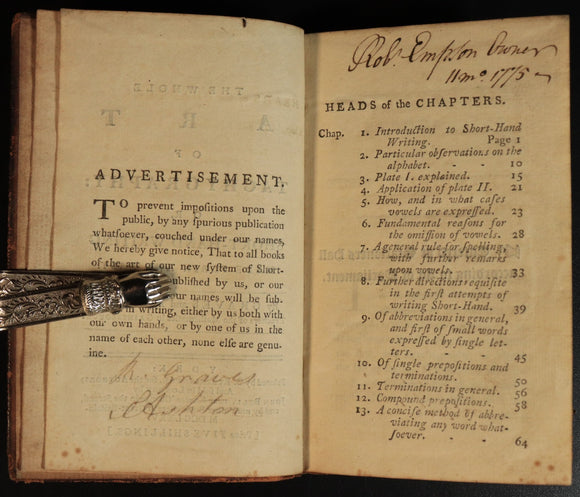 ADVERTISEMENT.
TO prevent impositions upon the
public, by any spurious publication
whatsoever, couched under our names,
We hereby give notice, That to all books
of the art of our new system of Short-
published by us, or our
our names will be sub-
in writing, either by us both with
our own hands, or by one of us in the
name of each other, none else are genu-
ine.
Graves
S Ashton
Robt. Empson Owner
11mo. 1775
HEADS of the CHAPTERS.
Chap. 1. Introduction to Short-Hand
Writing. Page 1
2. Particular observations on the
alphabet. - - 10
3. Plate I. explained. 15
4. Application of plate II. 21
5. How, and in what cases
vowels are expressed. 23
6. Fundamental reasons for
the omission of vowels. 28
7. A general rule for spelling,
with further remarks
upon vowels. 33
8. Further directions requisite
in the first attempts of
writing Short-Hand. 39
9. Of abbreviations in general,
and first of small words
expressed by single let-
ters. - - 45
10. Of single prepositions and
terminations. 50
11. Terminations in general. 56
12. Compound prepositions. 58
13. A concise method of abbre-
viating any word what-
soever. - - 64